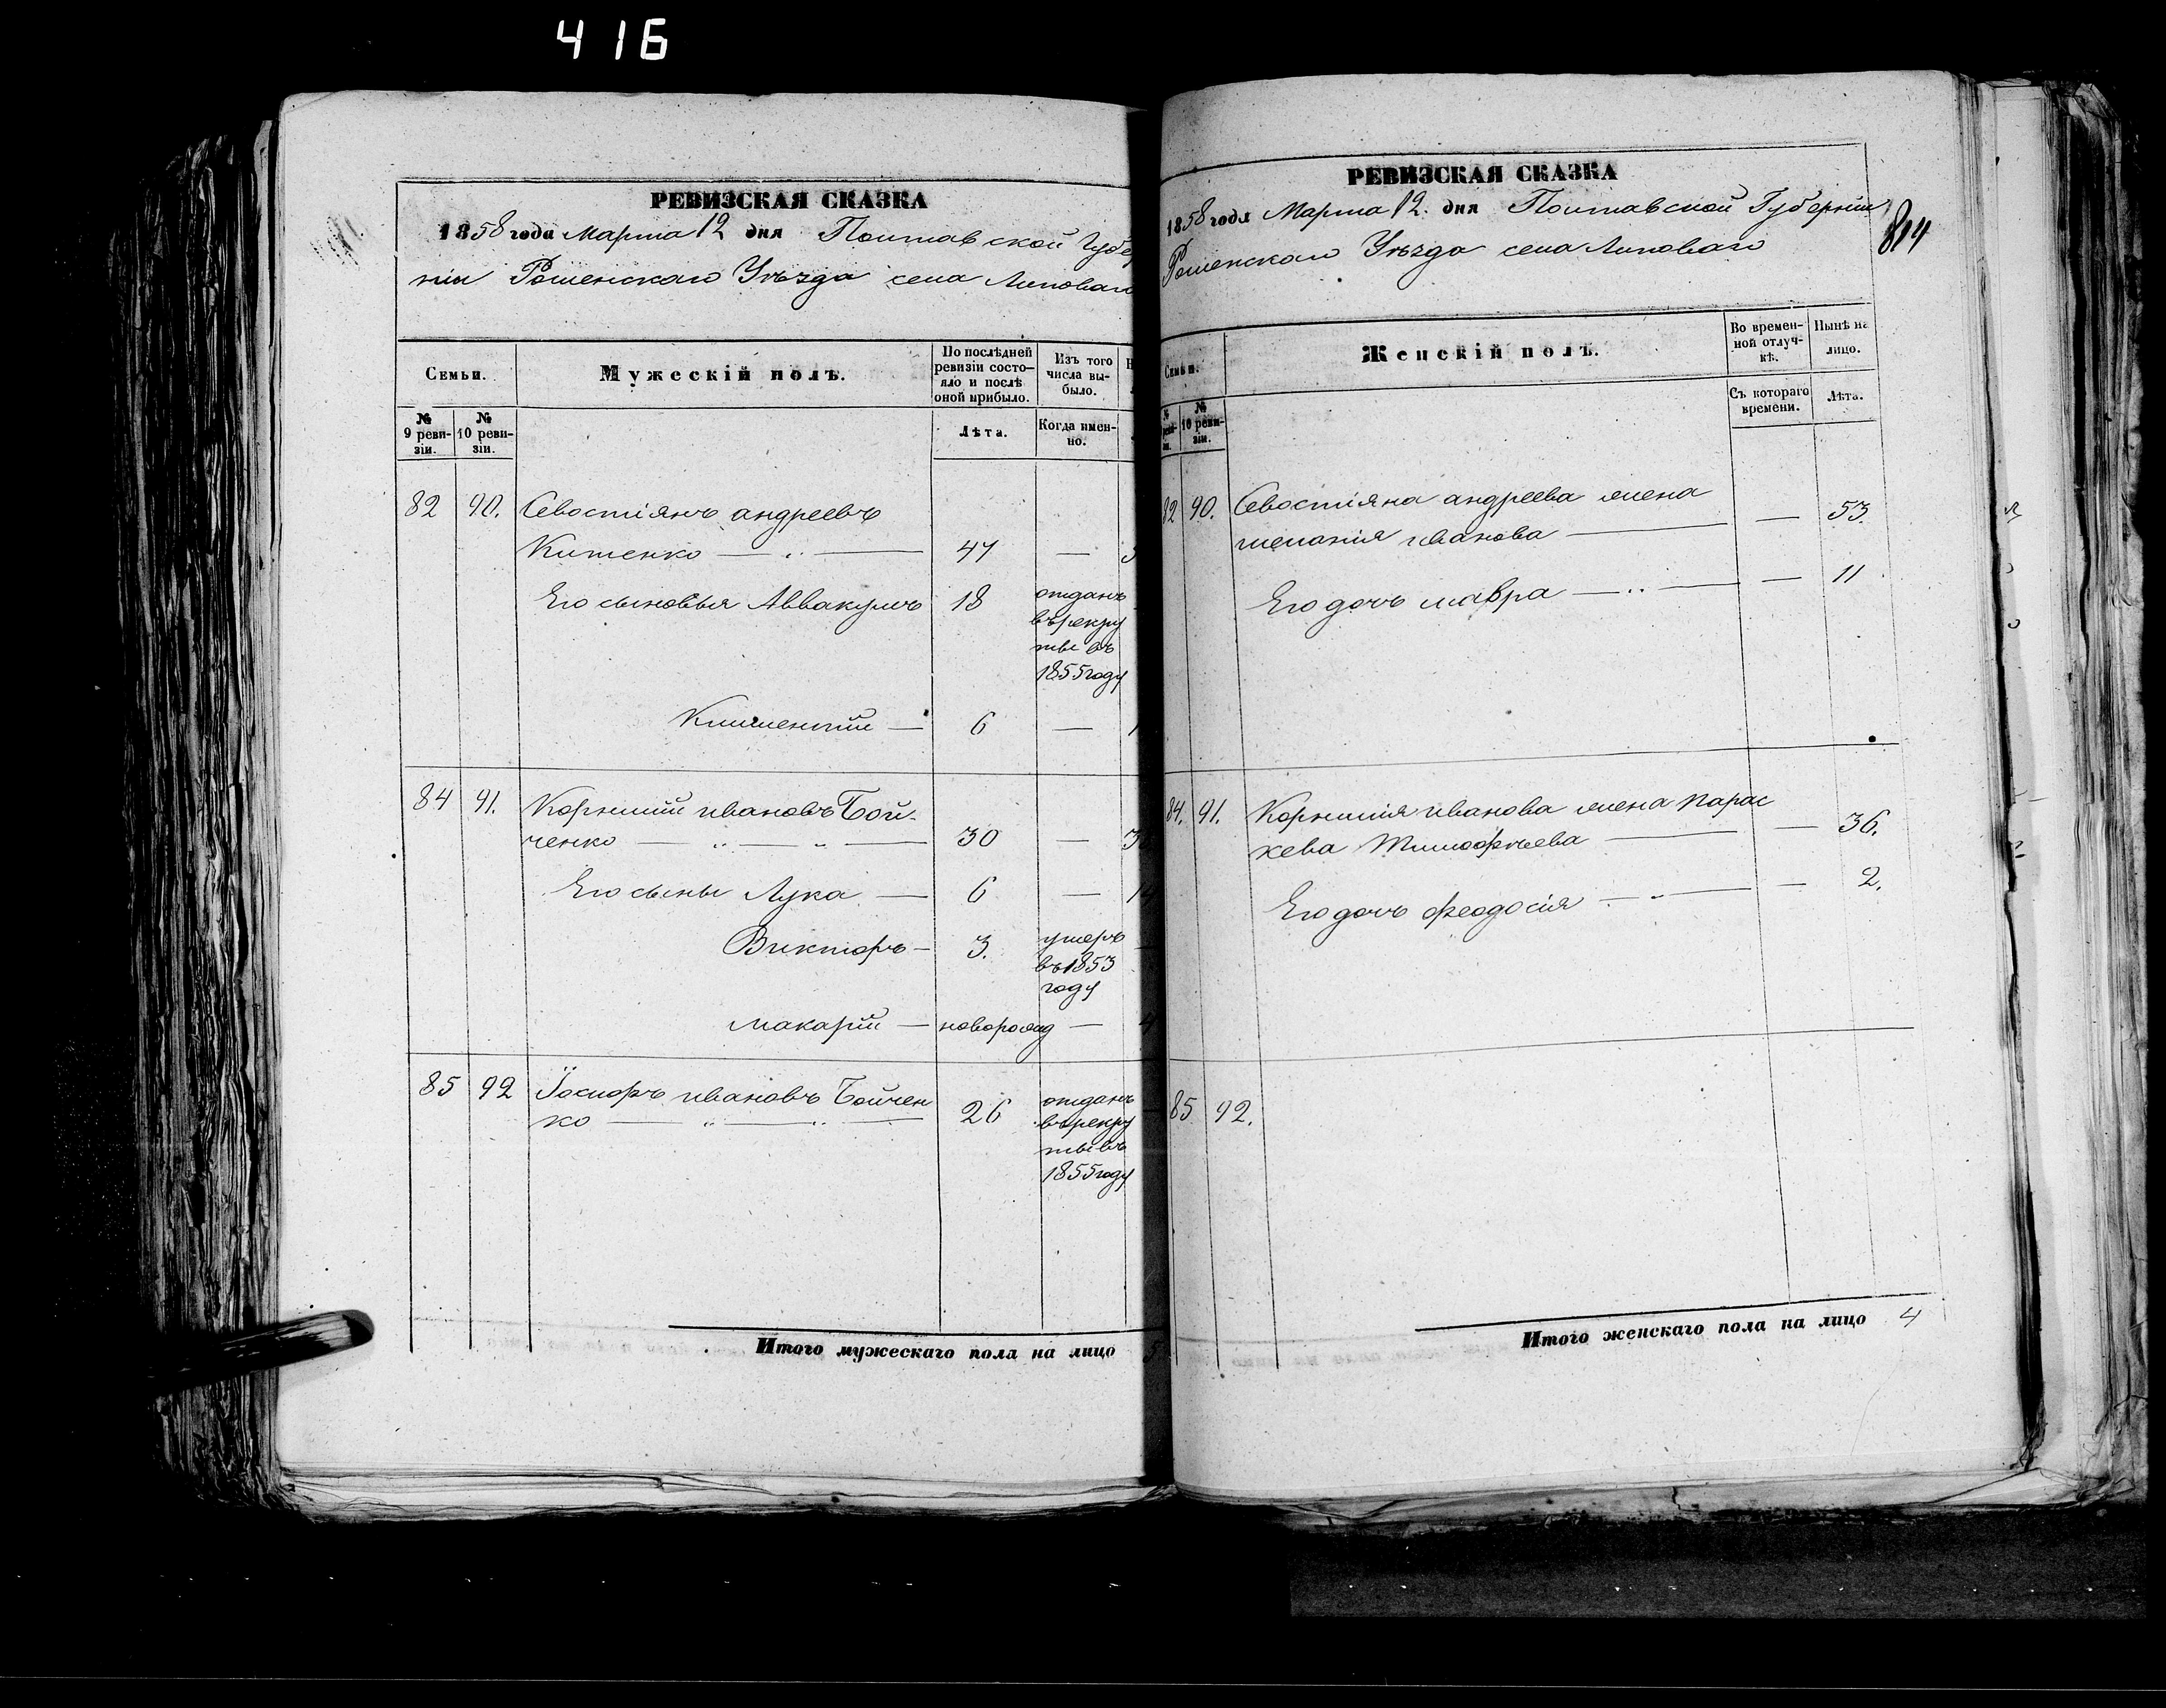 416
РЕВИЗСКАЯ СКАЗКА
1858 года Марта 12 дня Полтавской Губер
ніи Роменскаго Уѣзда села Липоваго
Семьи.
Мужескій полъ.
По послѣдней ревизіи состо-
яло и послѣ оной прибыло.
Изъ того числа вы-
было.
№ 9 реви-
зіи.
№ 10 реви-
зіи.
Лѣта.
Когда имен-
но.
82 90. Севостіянъ андреевъ
Китенко — 47 —
Его сыновья Аввакумъ 18 отданъ
въ рекру
ты въ
1855 году
Климентій — 6 —
84 91. Корнилій ивановъ Бой-
ченко — 30 —
Его сыны Лука — 6 —
Викторъ — 3. умеръ
въ 1853
году
Макарій —новорожд —
85 92 Іосифъ ивановъ Бойчен
ко — 26 отданъ
въ рекру
ты въ
1855 году
Итого мужескаго пола на лицо
РЕВИЗСКАЯ СКАЗКА
1858 года Марта 12. дня Полтавской Губерніи
Роменскаго Уѣзда села Липоваго
814
Семьи.
Женскій полъ.
Во времен-
ной отлуч-
кѣ.
Нынѣ на
лицо.
№ 10 реви-
зіи.
Съ котораго
времени.
Лѣта.
82 90. Севостіяна андреева жена
меланія иванова — — 53.
Его дочь мавра — — 11
84. 91. Корнилія иванова жена Парас
кева Тимофѣева — — 36.
Его дочь феодосія — — 2.
85 92.
Итого женскаго пола на лицо 4